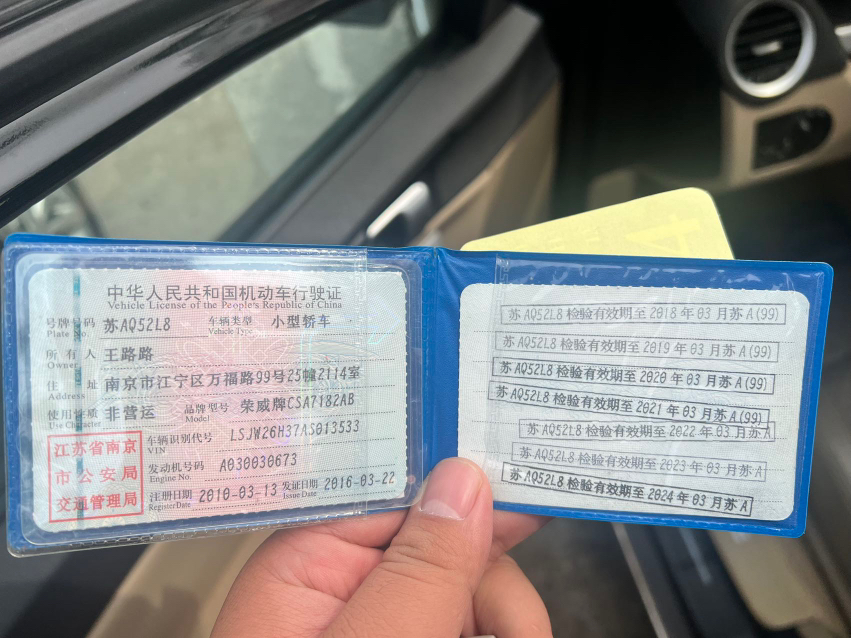 中华人民共和国机动车行驶证
Vehicle License of the People's Republic of China
号牌号码 苏AQ52L8 车辆类型 小型轿车
Plate No. Vehicle Type
所有人 王路路
Owner
住址 南京市江宁区万福路99号25幢2114室
Address
使用性质 非营运 品牌型号 荣威牌CSA7182AB
Use Character Model
江苏省南京市公安局交通管理局
车辆识别代号 LSJW26H37AS013533
VIN
发动机号码 A030030673
Engine No.
注册日期 2010-03-13 发证日期 2016-03-22
Register Date Issue Date
苏AQ52L8 检验有效期至 2018 年 03 月苏A(99)
苏AQ52L8 检验有效期至 2019 年 03 月苏A(99)
苏AQ52L8 检验有效期至 2020 年 03 月苏A(99)
苏AQ52L8 检验有效期至 2021 年 03 月苏A(99)
苏AQ52L8 检验有效期至 2022 年 03 月苏A
苏AQ52L8 检验有效期至 2023 年 03 月苏A
苏AQ52L8 检验有效期至 2024 年 03 月苏A